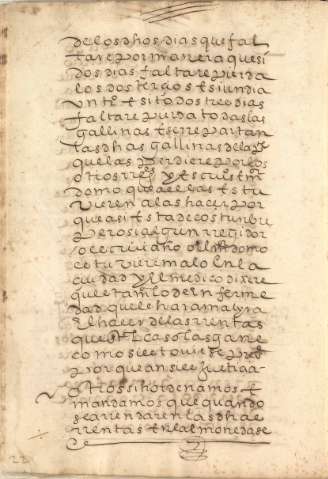 de los dhos dias que fal
tare por manera que si
dos dias faltare pierda
los dos terçios e si un dia
un te e si todos tres dias
faltare pierda todas las
gallinas e se repartan
las dhas gallinas de la pte
que las perdiere por los
otros y esto se en
domo que a ellas estu
vieren a las hacer por
que asi esta de costunbre
pero si algun rregidor
o escriuano o domo
estuviere malo en la
ciudad y el medico dixere
que es tam lo de enferme
dad que le hara mal yr a
el hacer de las rrentas
que en caso las gane
como si estouiese
por que ansi se
otrosi hordenamos e
mandamos que quando
se arrendaren las dhas
rrentas en el almoneda se